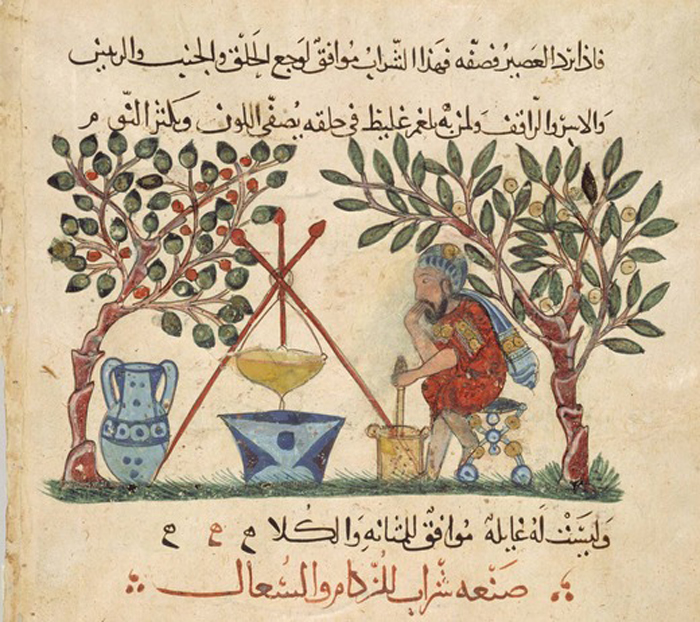 فاذا برد العصير فصفه فهذا الشراب موافق لوجع الحلق والجنب
ولمن به بلغم غليظ في حلقه يصفي اللون ويكثر النوم
وليست له غايله موافق للمثانه والكلا ح ح ح
صنعه شراب للزكام والسعال